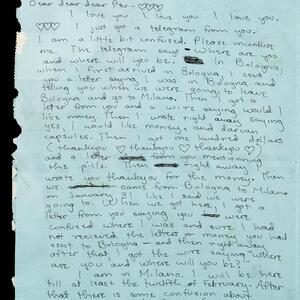 Dear dear dear Pru - ♡♡♡♡
I love you I love you I love you.
♡♡♡ I just got a telegram from you.
I am a little bit confused. Please unconfuse
me. The telegram says - Where are you
and where will you be. In Bologna,
when I first arrived in Bologna, I sent
you a letter saying I was in Bologna and
telling you when we were going to leave
Bologna and go to Milano. Then I got a
letter from you and a wire saying would I
like money. Then I wrote right away saying
yes, I would like money, and darvon
capsules. Then I got one hundred dollars
(thankyou ♡ thankyou ♡ thankyou ♡)
and a letter from you mentioning
the pills. Then right away
wrote you thankyou for the money. Then
we came from Bologna to Milano
on January 21 like I said we were
going to. When we got here, I got a
letter from you saying you were
confused where I was and sure I had
not received the letters or money you had
sent to Bologna - and then right away
after that got the wire saying "where
are you and where will you be?"
I am in Milano. I will be here
till at least the twelfth of February. After
that there is some confusion about